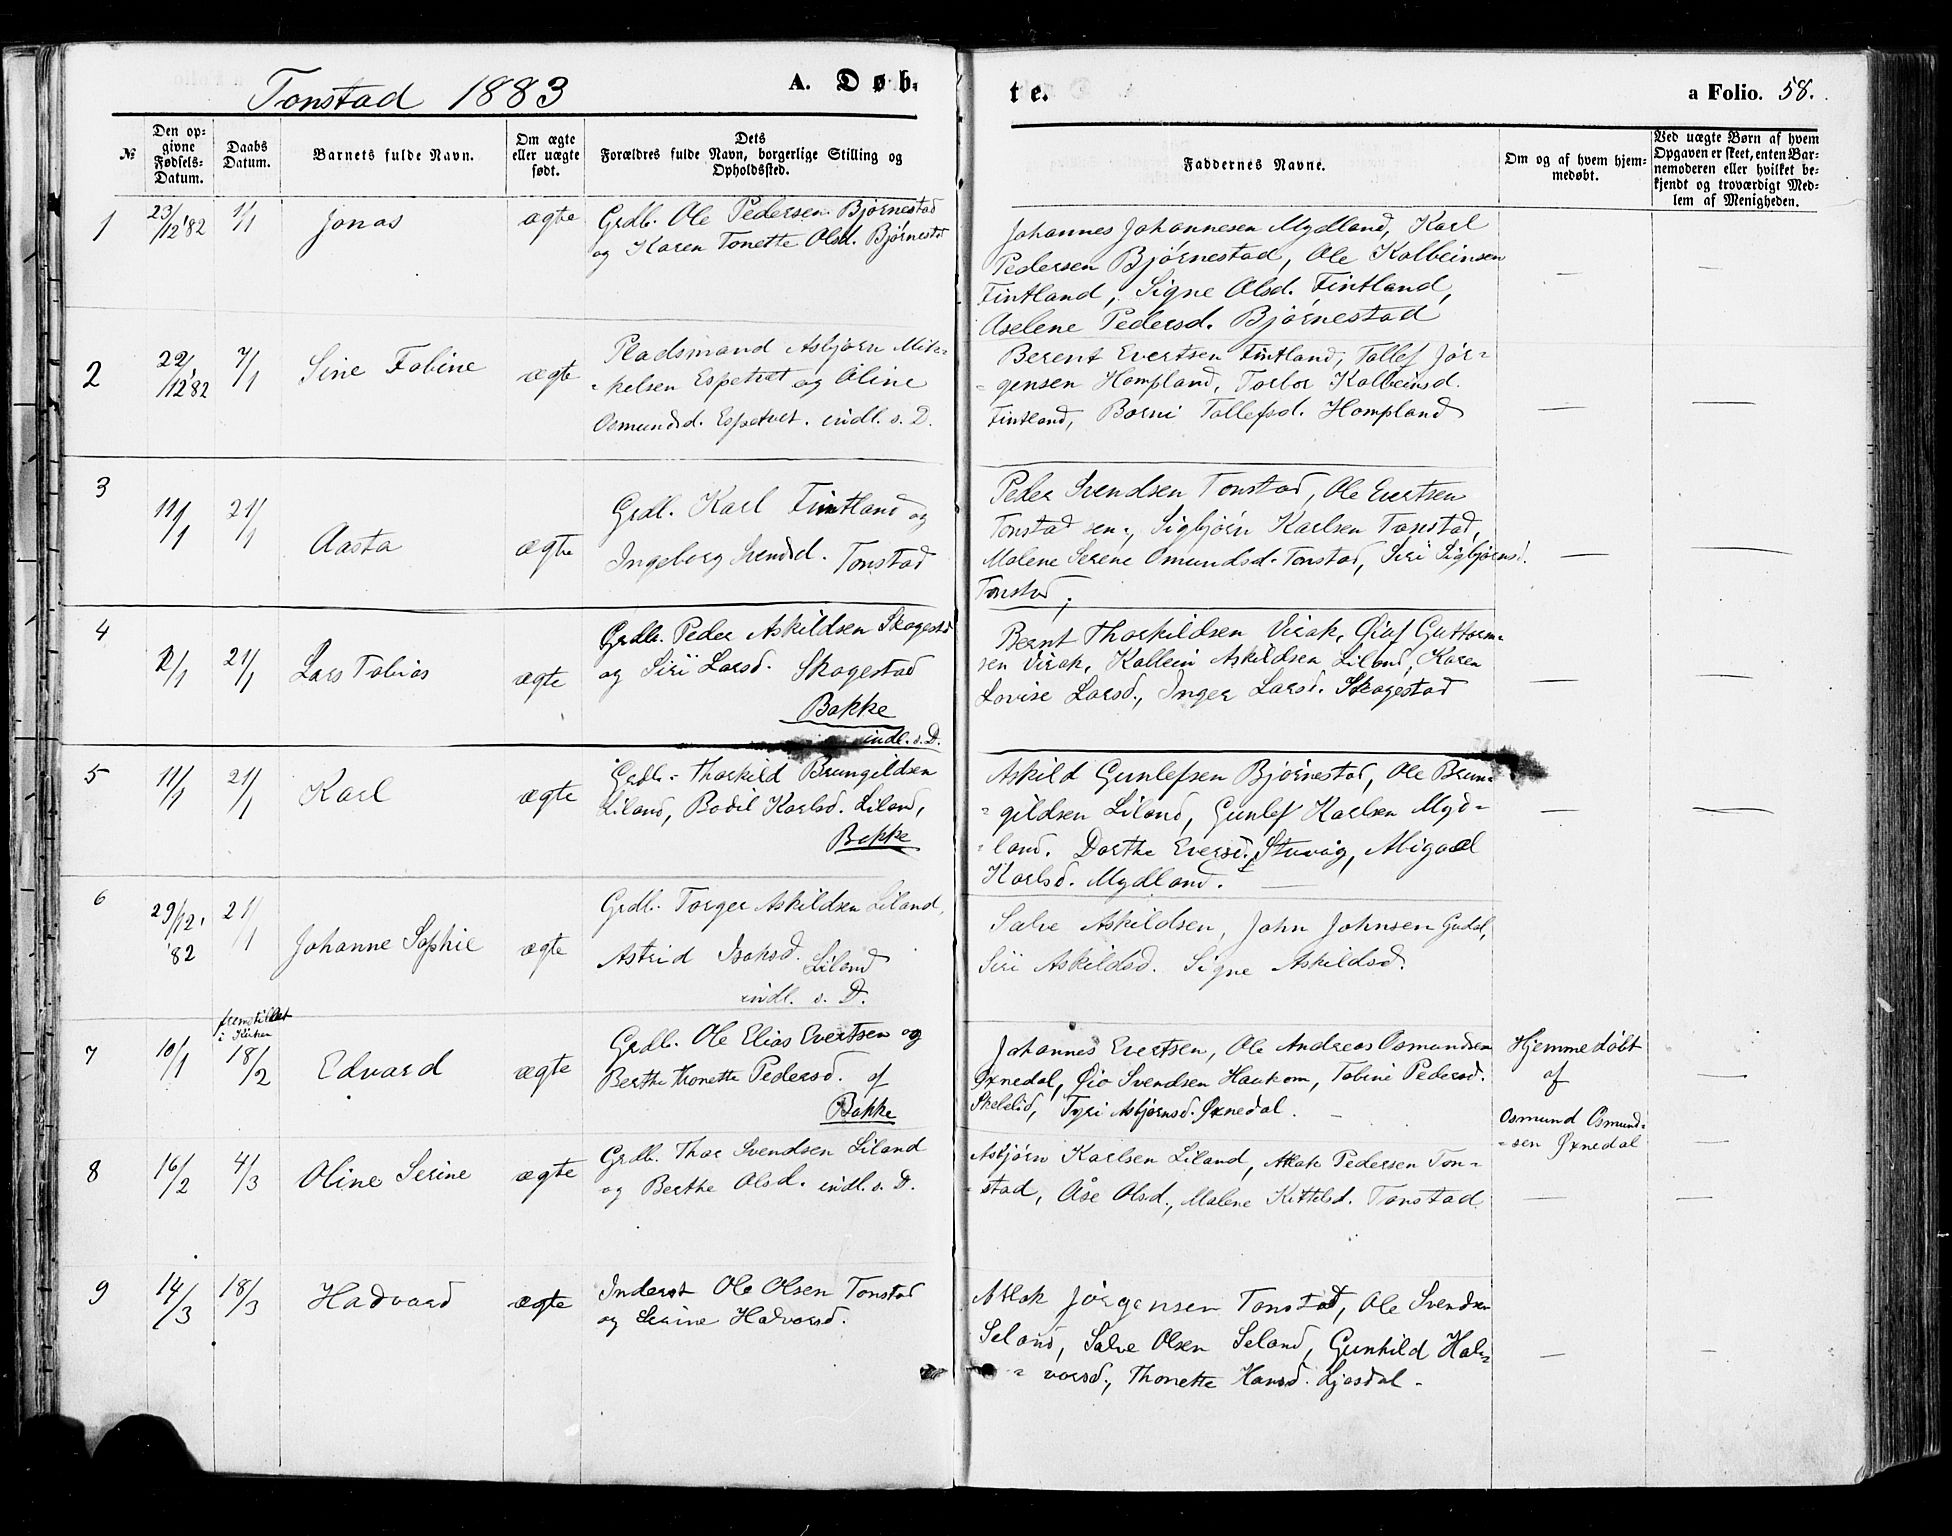 Tonstad 1883
A. Døb-
te.
a Folio. 58.
№
Den op-
givne
Fødsels-
Datum.
Daabs
Datum.
Barnets fulde Navn.
Om ægte
eller uægte
født.
Dets
Forældres fulde Navn, borgerlige Stilling og
Opholdssted.
Faddernes Navne.
Om og af hvem hjem-
medøbt.
Ved uægte Børn af hvem
Opgaven er skeet, enten Bar-
nemoderen eller hvilket be-
kjendt og troværdigt Med-
lem af Menigheden.
1
23/12 '82
1/1
Jonas
ægte
Grdb. Ole Pedersen Bjørnestad
og Karen Tonette Olsd. Bjørnestd
Johannes Johannesen Mydland, Karl
Pedersen Bjørnestad, Ole Kolbeinsen
Fintland, Signe Olsd. Fintland,
Aselene Pedersd. Bjørnestad
—
—
2
22/12 '82
7/1
Sine Tobine
ægte
Pladsmand Asbjørn Mik-
-kelsen Espetvet og Oline
Osmundsd. Espetvet. indl. s. D.
Berent Evertsen Fintland, Tollef Jør-
-gensen Hompland, Torbor Kolbeinsd.
Fintland, Borni Tollefsd. Hompland
—
—
3
11/1
21/1
Aasta
ægte
Grdb. Karl Fintland og
Ingeborg Svendsd. Tonstad
Peder Svendsen Tonstad, Ole Evertsen
Tonstad sen., Sigbjørn Karlsen Tonstad,
Malene Serene Omundsd. Tonstad, Siri Sigbjørnsd.
Tonstad.
—
—
4
2/1
21/1
Lars Tobias
ægte
Grdb. Peder Askildsen Skogestd
og Siri Larsd. Skogestad
Bakke
indl. s. D.
Bernt Thorkildsen Virak, Olaf Guttorm-
sen Virak, Kolbein Askildsen Liland, Karen
Lovise Larsd., Inger Larsd. Skogestad
—
—
5
11/1
21/1
Karl
ægte
Grdb. Thorkild Brungildsen
Liland, Bodil Karlsd. Liland,
Bakke
Askild Gunlefsen Bjørnestad, Ole Brun-
-gildsen Liland, Gunlef Karlsen Myd-
-land. Dorthe Eversd. Stuvåg, Abigael
Karlsd. Mydland.
—
—
6
29/12.
'82
21/1
Johanne Sophie
ægte
Grdb. Torger Askildsen Liland,
Astrid Isaksd. Liland
indl. s. D.
Salve Askildsen, John Johnsen Gudal,
Siri Askildsd. Signe Askildsd.
7
10/1
fremstillet
i Kirken
18/2
Edvard
ægte
Grdb. Ole Elias Evertsen og
Berthe Thonette Pedersd. af
Bakke
Johannes Evertsen, Ole Andreas Osmundsen
Øxnedal, Øio Svendsen Haukom, Tobine Pedersd.
Skeielid, Tyri Asbjørnsd. Øxnedal.
Hjemmedøbt
af
Osmund Osmund-
-sen Øxnedal
—
8
16/2
4/3
Oline Serine
ægte
Grdb. Thor Svendsen Liland
og Berthe Olsd. indl. s. D.
Asbjørn Karlsen Liland, Atlak Pedersen Ton-
-stad, Åse Olsd., Malene Kittelsd. Tonstad
—
—
9
14/3
18/3
Hadvard
ægte
Inderst Ole Olsen Tonstad
og Serine Halvorsd.
Atlak Jørgensen Tonstad, Ole Svendsen
Seland, Salve Olsen Seland, Gunhild Hal-
-vorsd., Thonette Hansd. Ljosdal
—
—